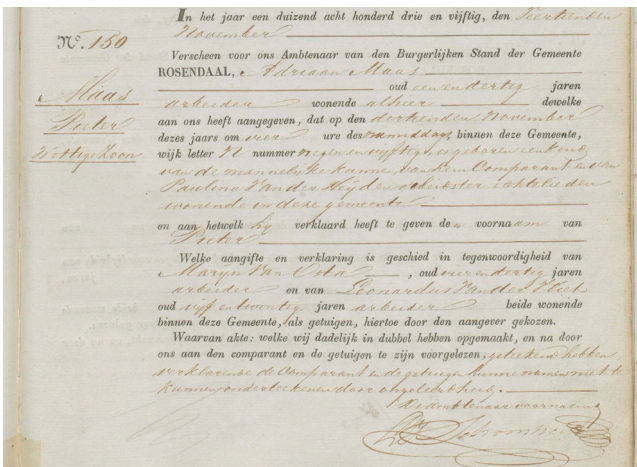 In het jaar een duizend acht honderd drie en vijftig, den veertienden
November
N.º 150
Verscheen voor ons Ambtenaar van den Burgerlijken Stand der Gemeente
ROSENDAAL, Adriaan Maas
oud een en dertig jaren
arbeider wonende alhier dewelke
Maas
Pieter
Wettige Zoon
aan ons heeft aangegeven, dat op den dertienden November
dezes jaars om vier ure des namiddags binnen deze Gemeente,
wijk letter N nummer negen en vijftig, is geboren een kind
van de mannelijke kunne, van hem Comparant en van
Paulina Van der Heijden arbeidster echtelieden
wonende in deze gemeente
en aan hetwelk hij verklaard heeft te geven den voornaam van
Pieter
Welke aangifte en verklaring is geschied in tegenwoordigheid van
Maryn Van Osta, oud vier en dertig jaren
arbeider en van Leonardus Van der
oud vijf en twintig jaren arbeider beide wonende
binnen deze Gemeente, als getuigen, hiertoe door den aangever gekozen.
Waarvan akte: welke wij dadelijk in dubbel hebben opgemaakt, en na door
ons aan den comparant en de getuigen te zijn voorgelezen, geteekend hebben
verklarende de Comparant en de getuigen hunne namen niet te
kunnen onderteekenen door ongeleerdheid.
De Ambtenaar voornoemd